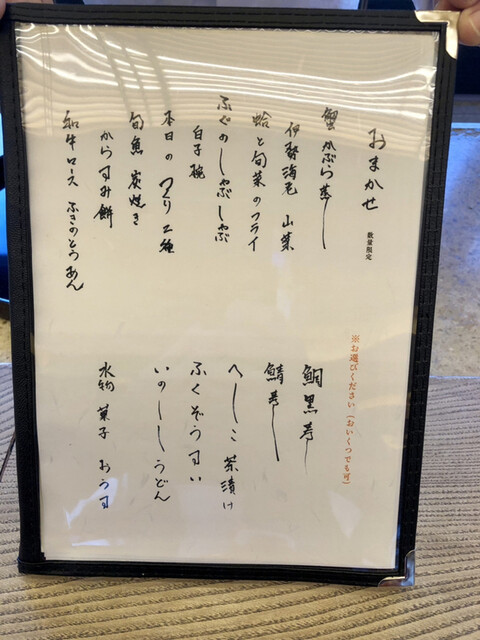 おまかせ 数量限定
蟹かぶら蒸し
伊勢海老 山菜
蛤と旬菜のフライ
ふぐのしゃぶしゃぶ
白子碗
本日のつくり二種
旬魚 炭焼き
からすみ餅
和牛ロース ふきのとうあん
※お選びください(おいくつでも可)
鯛黒寿し
鯖寿し
へしこ茶漬け
ふくぞうすい
いのししうどん
水物 菓子 おうす